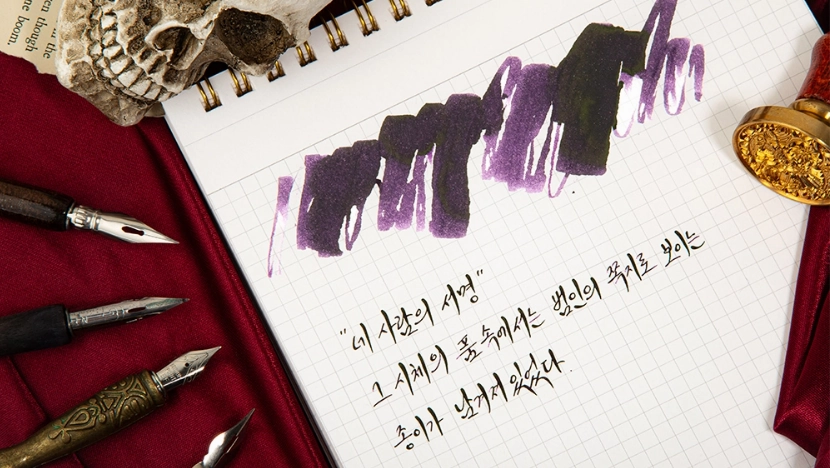 en though
in the
ne boom.
"네 사람의 서명"
그 시체의 품속에서는 범인의 쪽지로 보이는
종이가 남겨져있었다.